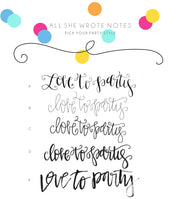 ALL SHE WROTE NOTES
PICK YOUR PARTY STYLE
A Love to party
B love to party
C love to party
D love to party
E love to party